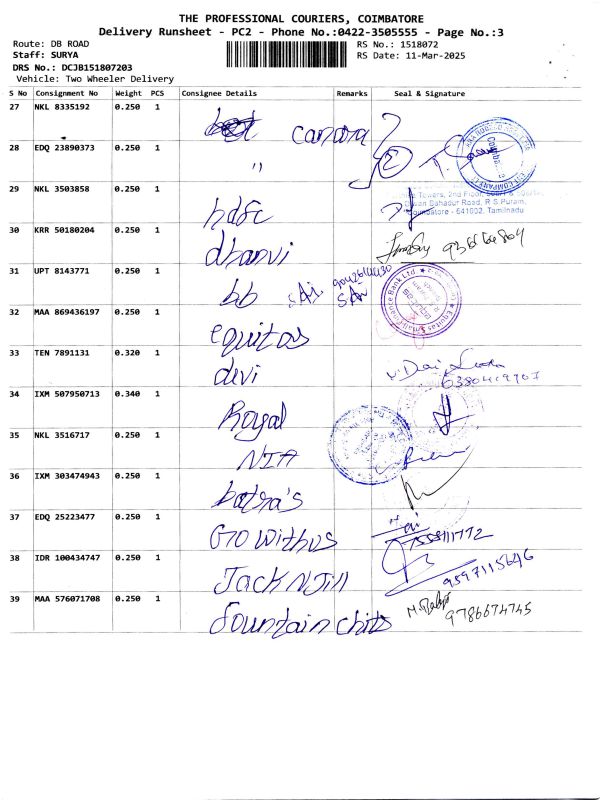 THE PROFESSIONAL COURIERS, COIMBATORE
Delivery Runsheet - PC2 - Phone No.:0422-3505555 - Page No.:3
Route: DB ROAD
RS No.: 1518072
Staff: SURYA
RS Date: 11-Mar-2025
DRS No.: DCJB151807203
Vehicle: Two Wheeler Delivery
S No Consignment No Weight PCS Consignee Details Remarks Seal & Signature
27 NKL 8335192 0.250 1 canara
28 EDQ 23890373 0.250 1 "
29 NKL 3503858 0.250 1 hdfc
Towers, 2nd Floor,
Dewan Bahadur Road, R S Puram,
Coimbatore - 641002, Tamilnadu
30 KRR 50180204 0.250 1 dhanvi
31 UPT 8143771 0.250 1 bb SAI
SAI
32 MAA 869436197 0.250 1 equitas
Equitas Small Finance Bank Ltd
33 TEN 7891131 0.320 1 devi
34 IXM 507950713 0.340 1 Royal
35 NKL 3516717 0.250 1 NIA
36 IXM 303474943 0.250 1 batra's
37 EDQ 25223477 0.250 1 Gro withus
38 IDR 100434747 0.250 1 Jack N Jill 9597115646
39 MAA 576071708 0.250 1 fountain chits 9786674745